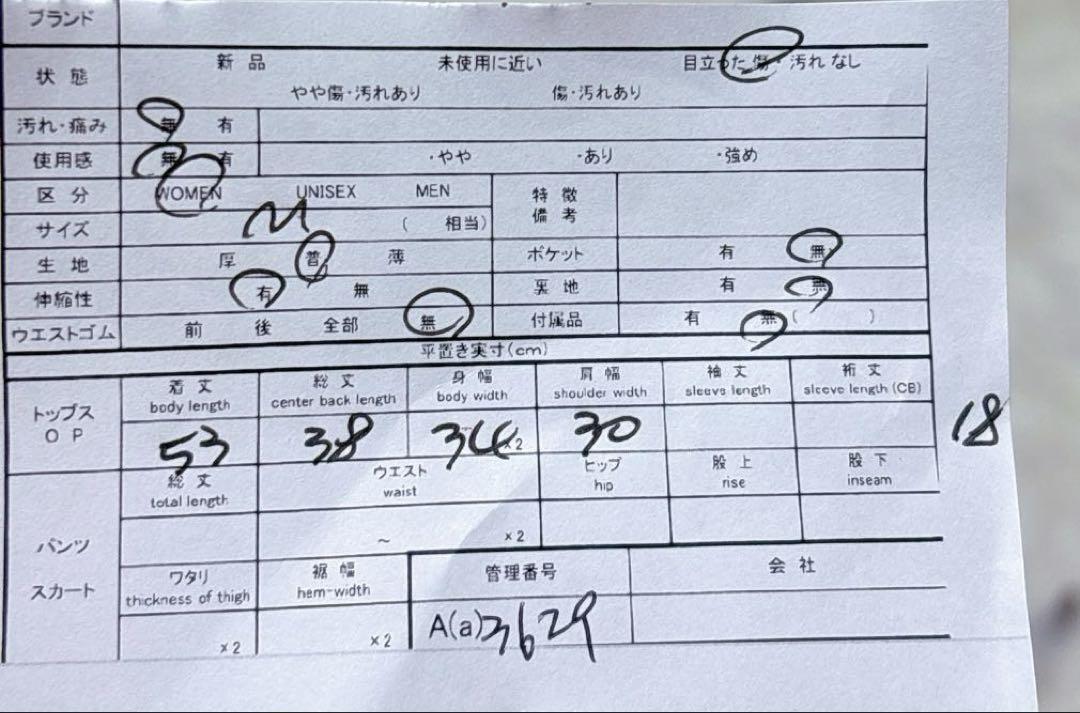 ブランド
状態 新品 未使用に近い 目立った傷・汚れなし
やや傷・汚れあり 傷・汚れあり
汚れ・痛み 無 有
使用感 無 有 ・やや ・あり ・強め
区分 WOMEN UNISEX MEN 特徴
備考
サイズ M ( 相当)
生地 厚 普 薄 ポケット 有 無
伸縮性 有 無 裏地 有 無
ウエストゴム 前 後 全部 無 付属品 有 無 ( )
平置き実寸(cm)
トップス
OP
着丈 総丈 身幅 肩幅 袖丈 裄丈
body length center back length body width shoulder width sleeve length sleeve length (CB)
53 38 34 ×2 30 18
パンツ
スカート
総丈 ウエスト ヒップ 股上 股下
total length waist hip rise inseam
~ ×2
ワタリ 裾幅 管理番号 会社
thickness of thigh hem-width
×2 ×2 A(a)3629